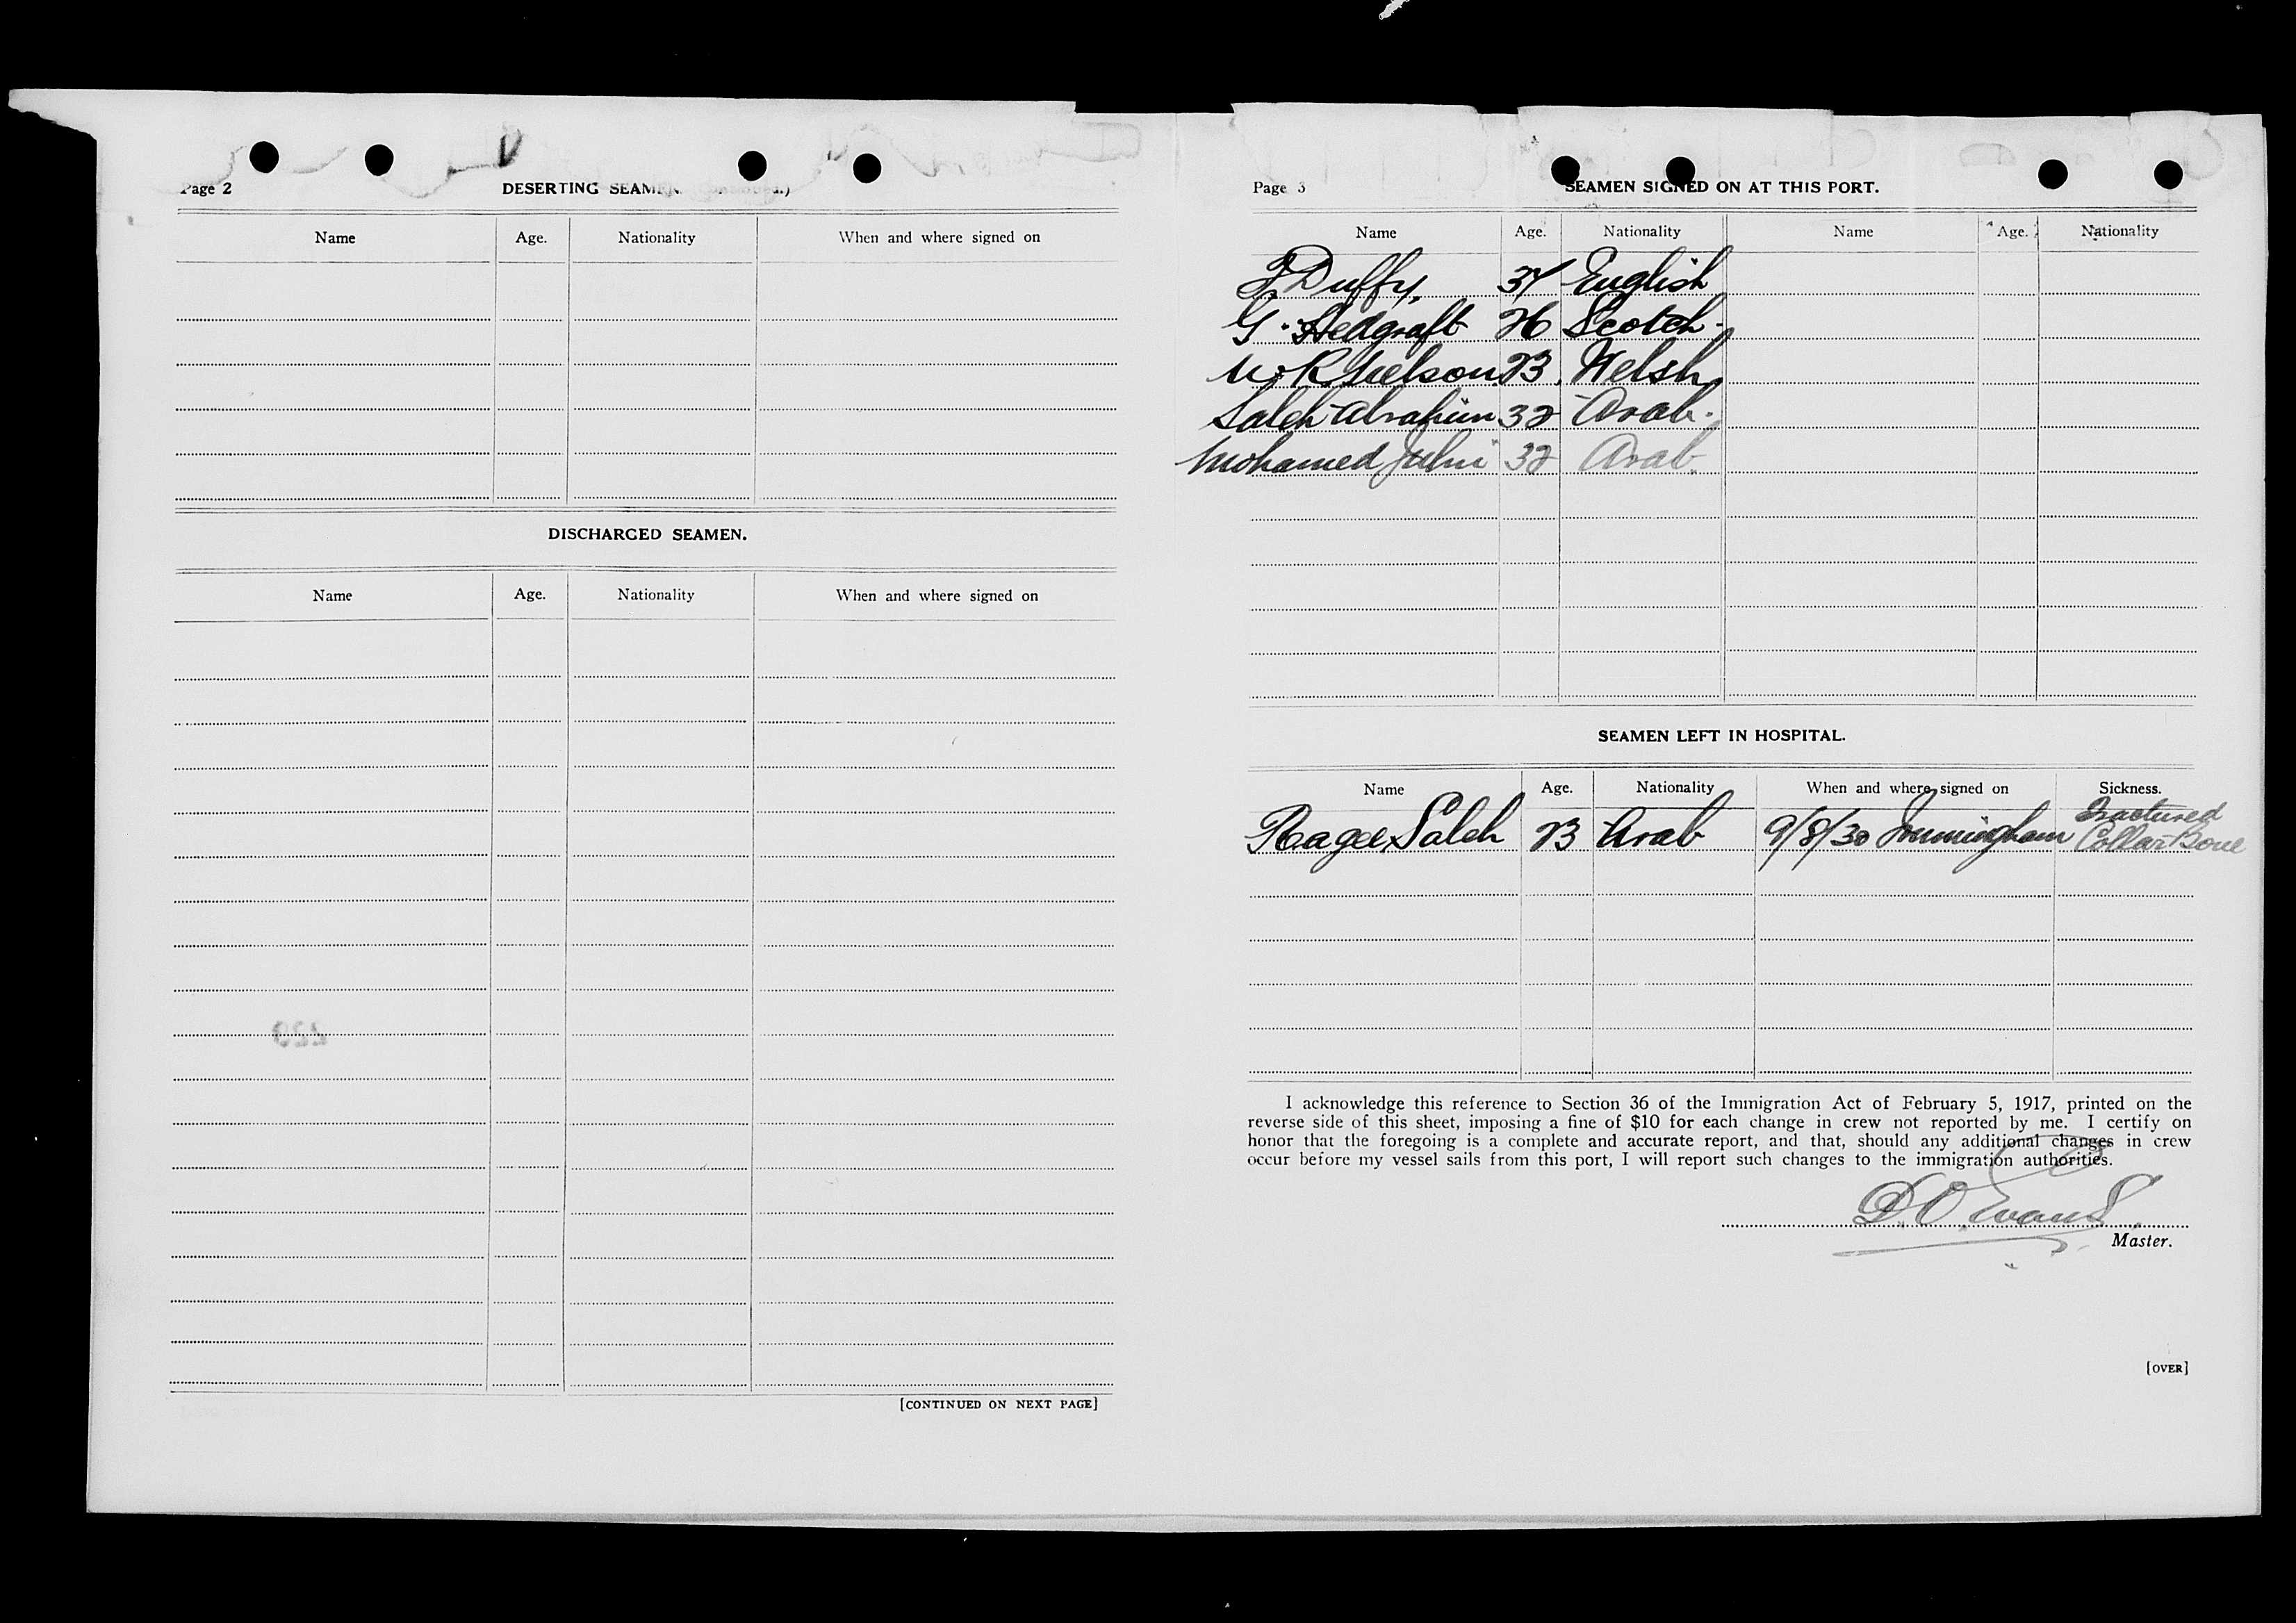 Page 2
DESERTING SEAMEN.
Name Age. Nationality When and where signed on
DISCHARGED SEAMEN.
Name Age. Nationality When and where signed on
[CONTINUED ON NEXT PAGE]
Page 3
SEAMEN SIGNED ON AT THIS PORT.
Name Age. Nationality Name Age. Nationality
Duffy, English
G. 26 Scotch.
Nielson 23 Welsh
Saleh Abrahim 32 Arab.
Mohamed 32 Arab.
SEAMEN LEFT IN HOSPITAL.
Name Age. Nationality When and where signed on Sickness.
Ragee Saleh 23 Arab 9/8/30 Immingham Fractured
Collar Bone
I acknowledge this reference to Section 36 of the Immigration Act of February 5, 1917, printed on the
reverse side of this sheet, imposing a fine of $10 for each change in crew not reported by me. I certify on
honor that the foregoing is a complete and accurate report, and that, should any additional changes in crew
occur before my vessel sails from this port, I will report such changes to the immigration authorities.
D. O. Evans
Master.
[OVER]